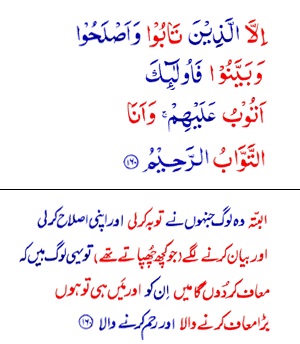 اِلَّا الَّذِيْنَ تَابُوْا وَاَصْلَحُوْا
وَبَيَّنُوْا فَاُولٰٓئِكَ
اَتُوْبُ عَلَيْهِمْ ۚ وَاَنَا
التَّوَّابُ الرَّحِيْمُ ﴿۱۶۰﴾
البتہ وہ لوگ جنہوں نے توبہ کرلی اور اپنی اصلاح کرلی
اور بیان کرنے لگے (جو کچھ چُھپاتے تھے) تو یہی لوگ ہیں کہ
معاف کردُوں گا میں اِن کو اور مَیں ہی تو ہوں
بڑا معاف کرنے والا اور رحم کرنے والا ﴿۱۶۰﴾